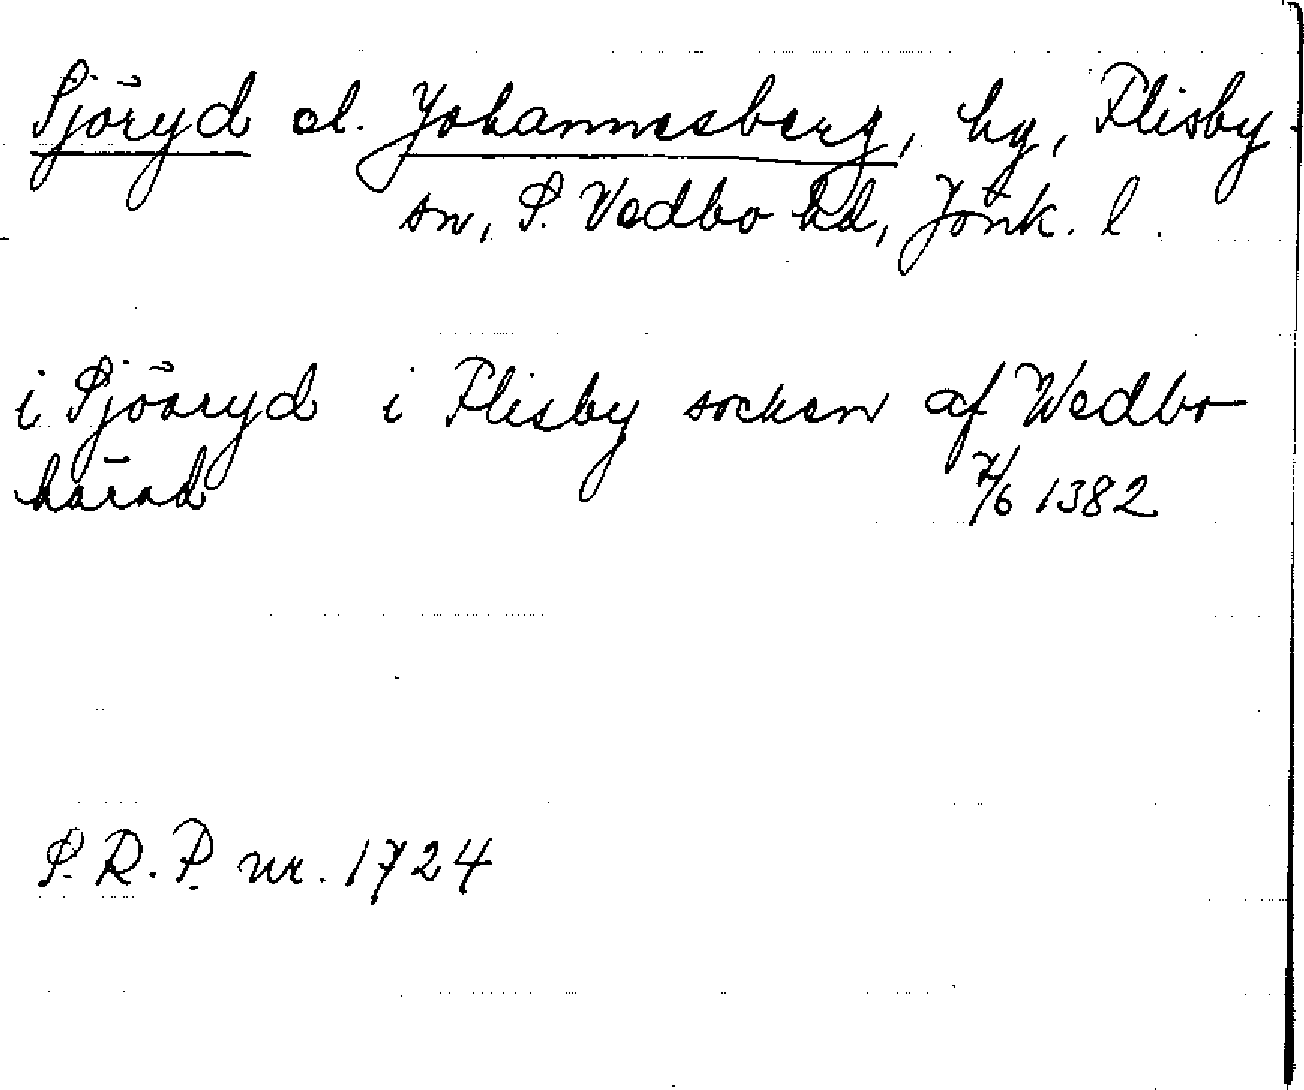 Sjöryd el. Johannesberg, hg, Flisby
sn, S. Vedbo hd, Jönk. l.
i Sjöaryd i Flisby socken af Wedbo
härad 7/6 1382
S.R.P. nr. 1724